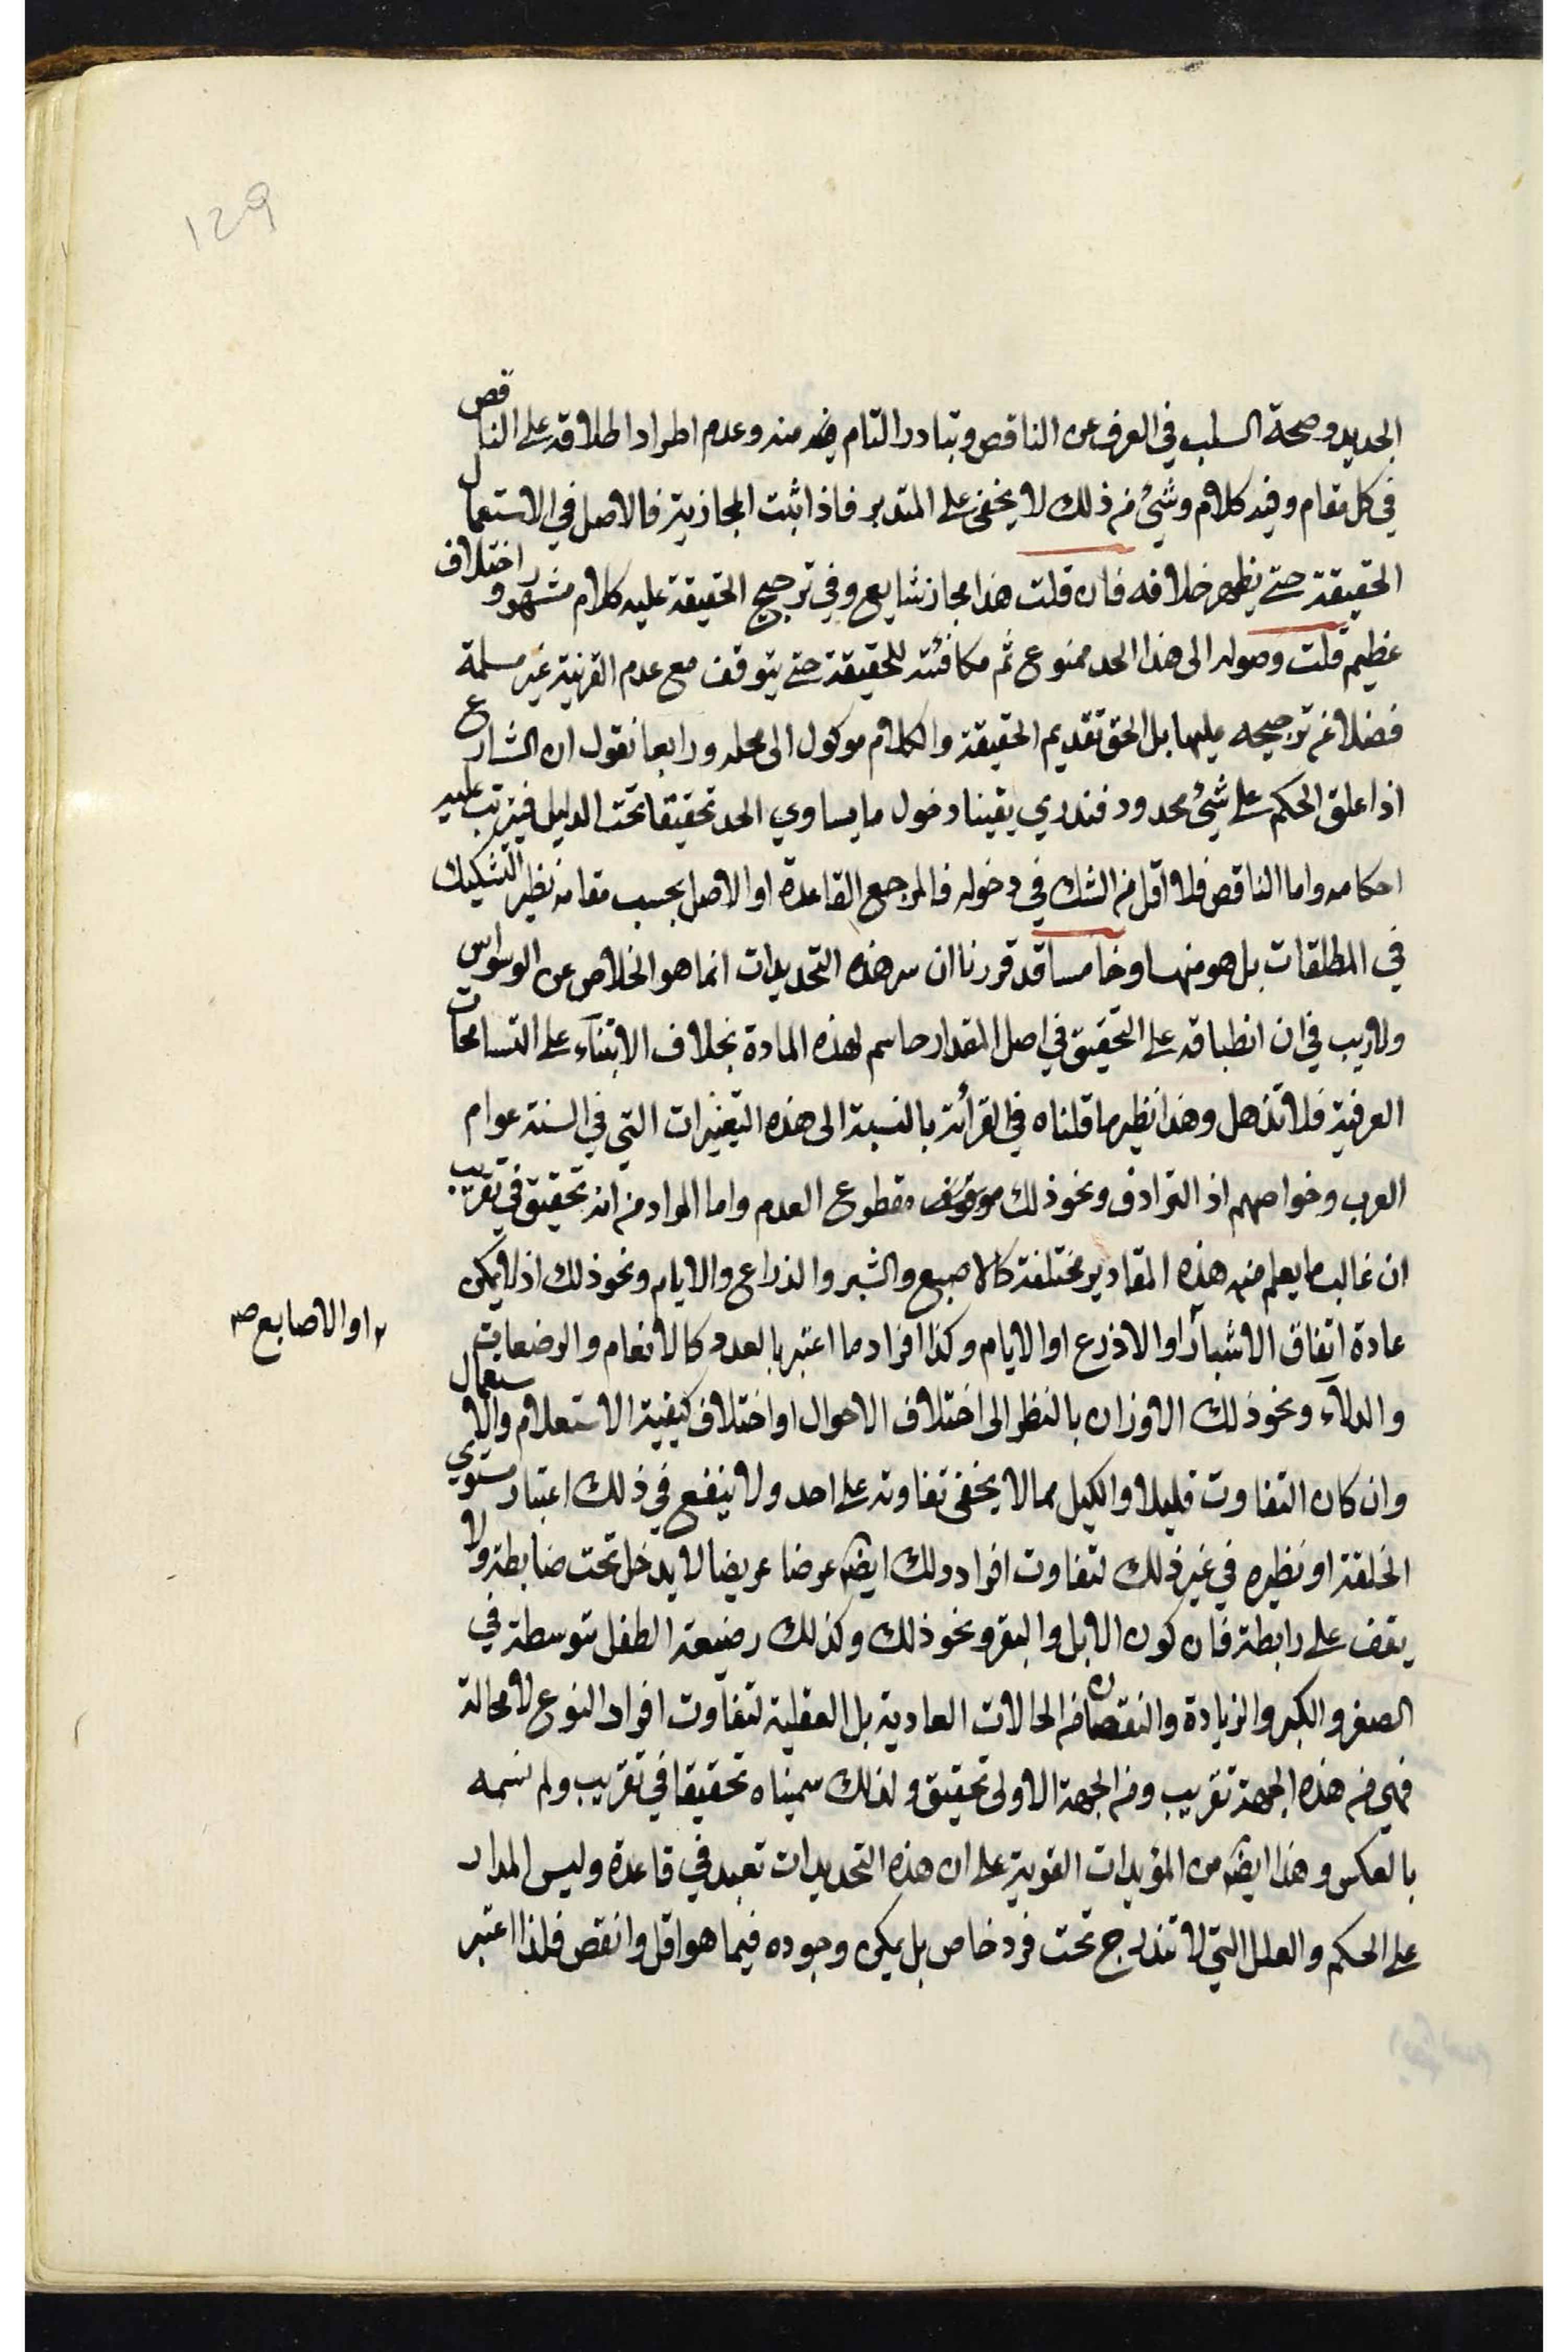 129
الجديد وصحة السلب في العرف عن الناقص وتبادر التام منه وعدم اطراد اطلاقه على الناقص
في كل مقام وفيه كلام وشئ من ذلك لا يخفى على المتدبر فاذا ثبت المجازية فالاصل في الاستعمال
الحقيقة حتى يظهر خلافه فان قلت هذا مجاز شايع وفي ترجيح الحقيقة عليه كلام مشهور واختلاف
عظيم قلت وصوله الى هذا الحد ممنوع ثم مكافئته للحقيقة حتى يتوقف مع عدم القرينة غير مسلمة
فضلا عن ترجيحه عليها بل الحق تقديم الحقيقة والكلام موكول الى محله ورابعا نقول ان الشارع
اذا علق الحكم على شئ محدود فندري يقينا دخول ما يساوي الحد تحقيقا تحت الدليل فيترتب عليه
احكامه واما الناقص فلا اقل من الشك في دخوله فالمرجع القاعدة او الاصل بحسب مقامه نظير التشكيك
في المطلقات بل هو منها وخامسا قد قررنا ان سر هذه التحديدات انما هو الخلاص عن الوسواس
ولا ريب في ان انطباقه على التحقيق في اصل المقدار حاسم لهذه المادة بخلاف الابتناء على التسامحات
العرفية فلا تذهل وهذا نظير ما قلناه في القرائة بالنسبة الى هذه التغيرات التي في السنة عوام
العرب وخواصهم اذ الترادف ونحو ذلك مقطوع العدم واما المراد من انه تحقيق في تقريب
ان غالب ما يعلم منه هذه المقادير مختلفة كالاصبع والشبر والذراع والايام ونحو ذلك اذ لا يمكن
عادة اتفاق الاشبار او الاذرع او الايام وكذا افراد ما اعتبر بالعدد كالانعام والرضعات
او الاصابع صح
والدلاء ونحو ذلك الاوزان بالنظر الى اختلاف الاحوال او اختلاف كيفية الاستعلام والاستعمال
وان كان التفاوت قليلا والكيل مما لا يخفى تفاوته على احد ولا ينفع في ذلك اعتبار مستوي
الخلقة او نظيره في غير ذلك لتفاوت افراد ذلك ايضا عرضا عريضا لا يدخل تحت ضابطة ولا
يقف على رابطة فان كون الابل والبقر ونحو ذلك وكذلك رضيعة الطفل متوسطة في
الصغر والكبر والزيادة والنقصان من الحالات العادية بل العقلية لتفاوت افراد النوع لا محالة
فهي من هذه الجهة تقريب ومن الجهة الاولى تحقيق ولذلك سميناه تحقيقا في تقريب ولم نسمه
بالعكس وهذا ايضا من المؤيدات القوية على ان هذه التحديدات تعبد في قاعدة وليس المدار
على الحكم والعلل التي لا تندرج تحت فرد خاص بل يمكن وجوده فيما هو اقل وانقص فلذا اعتبر